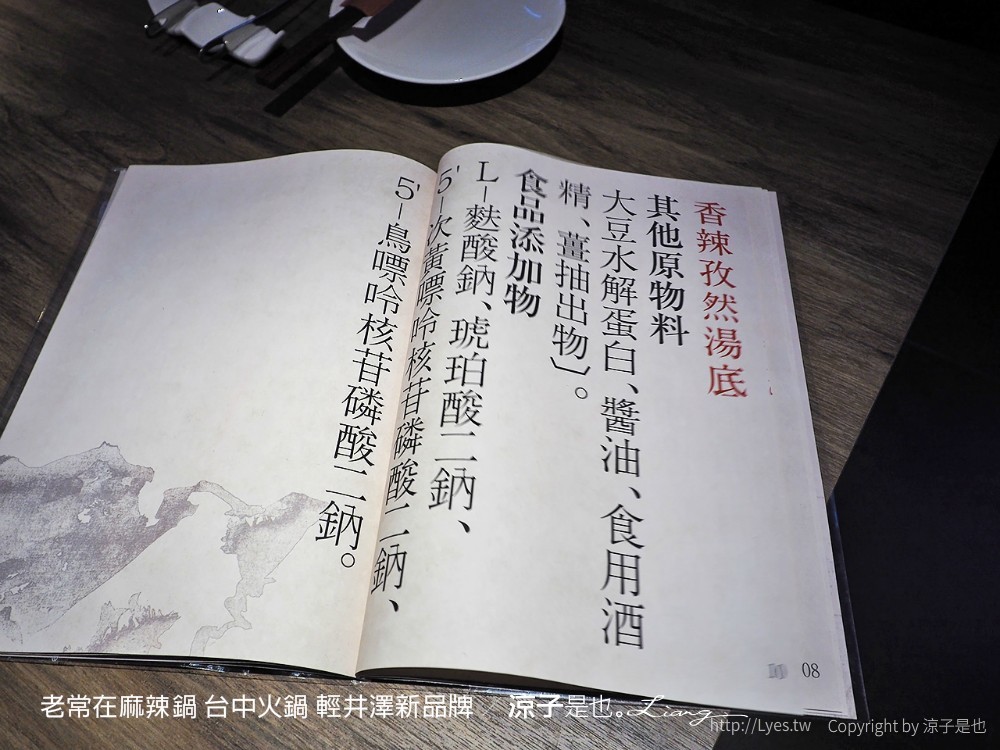 香辣孜然湯底
其他原物料
大豆水解蛋白、醬油、食用酒
精、薑抽出物〕。
食品添加物
L-麩酸鈉、琥珀酸二鈉、
5'-次黃嘌呤核苷磷酸二鈉、
5'-鳥嘌呤核苷磷酸二鈉。
08
老常在麻辣鍋 台中火鍋 輕井澤新品牌
涼子是也。Liang
http://Lyes.tw Copyright by 涼子是也